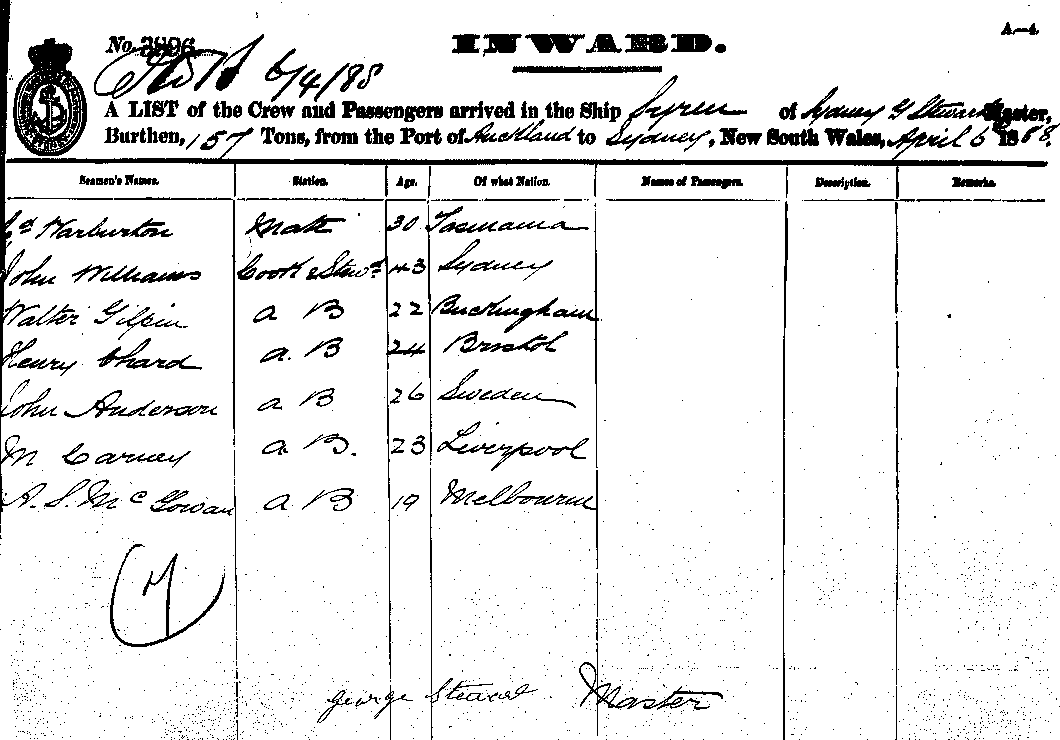 INWARD.
A—4
No. 3896
6/4/88
A LIST of the Crew and Passengers arrived in the Ship Syren of Sydney G Steward Master,
Burthen, 157 Tons, from the Port of Auckland to Sydney, New South Wales, April 6 1888.
Seamen's Names. Station. Age. Of what Nation. Names of Passengers. Description. Remarks.
Warburton Mate 30 Tasmania
John Williams Cook & Stewd 43 Sydney
Walter Gilpin a B 22 Buckingham
Henry Chard a. B 24 Bristol
John Anderson a B 26 Sweden
M Carney a B. 23 Liverpool
A. S. McGowan a B 19 Melbourne
7
George Steward Master